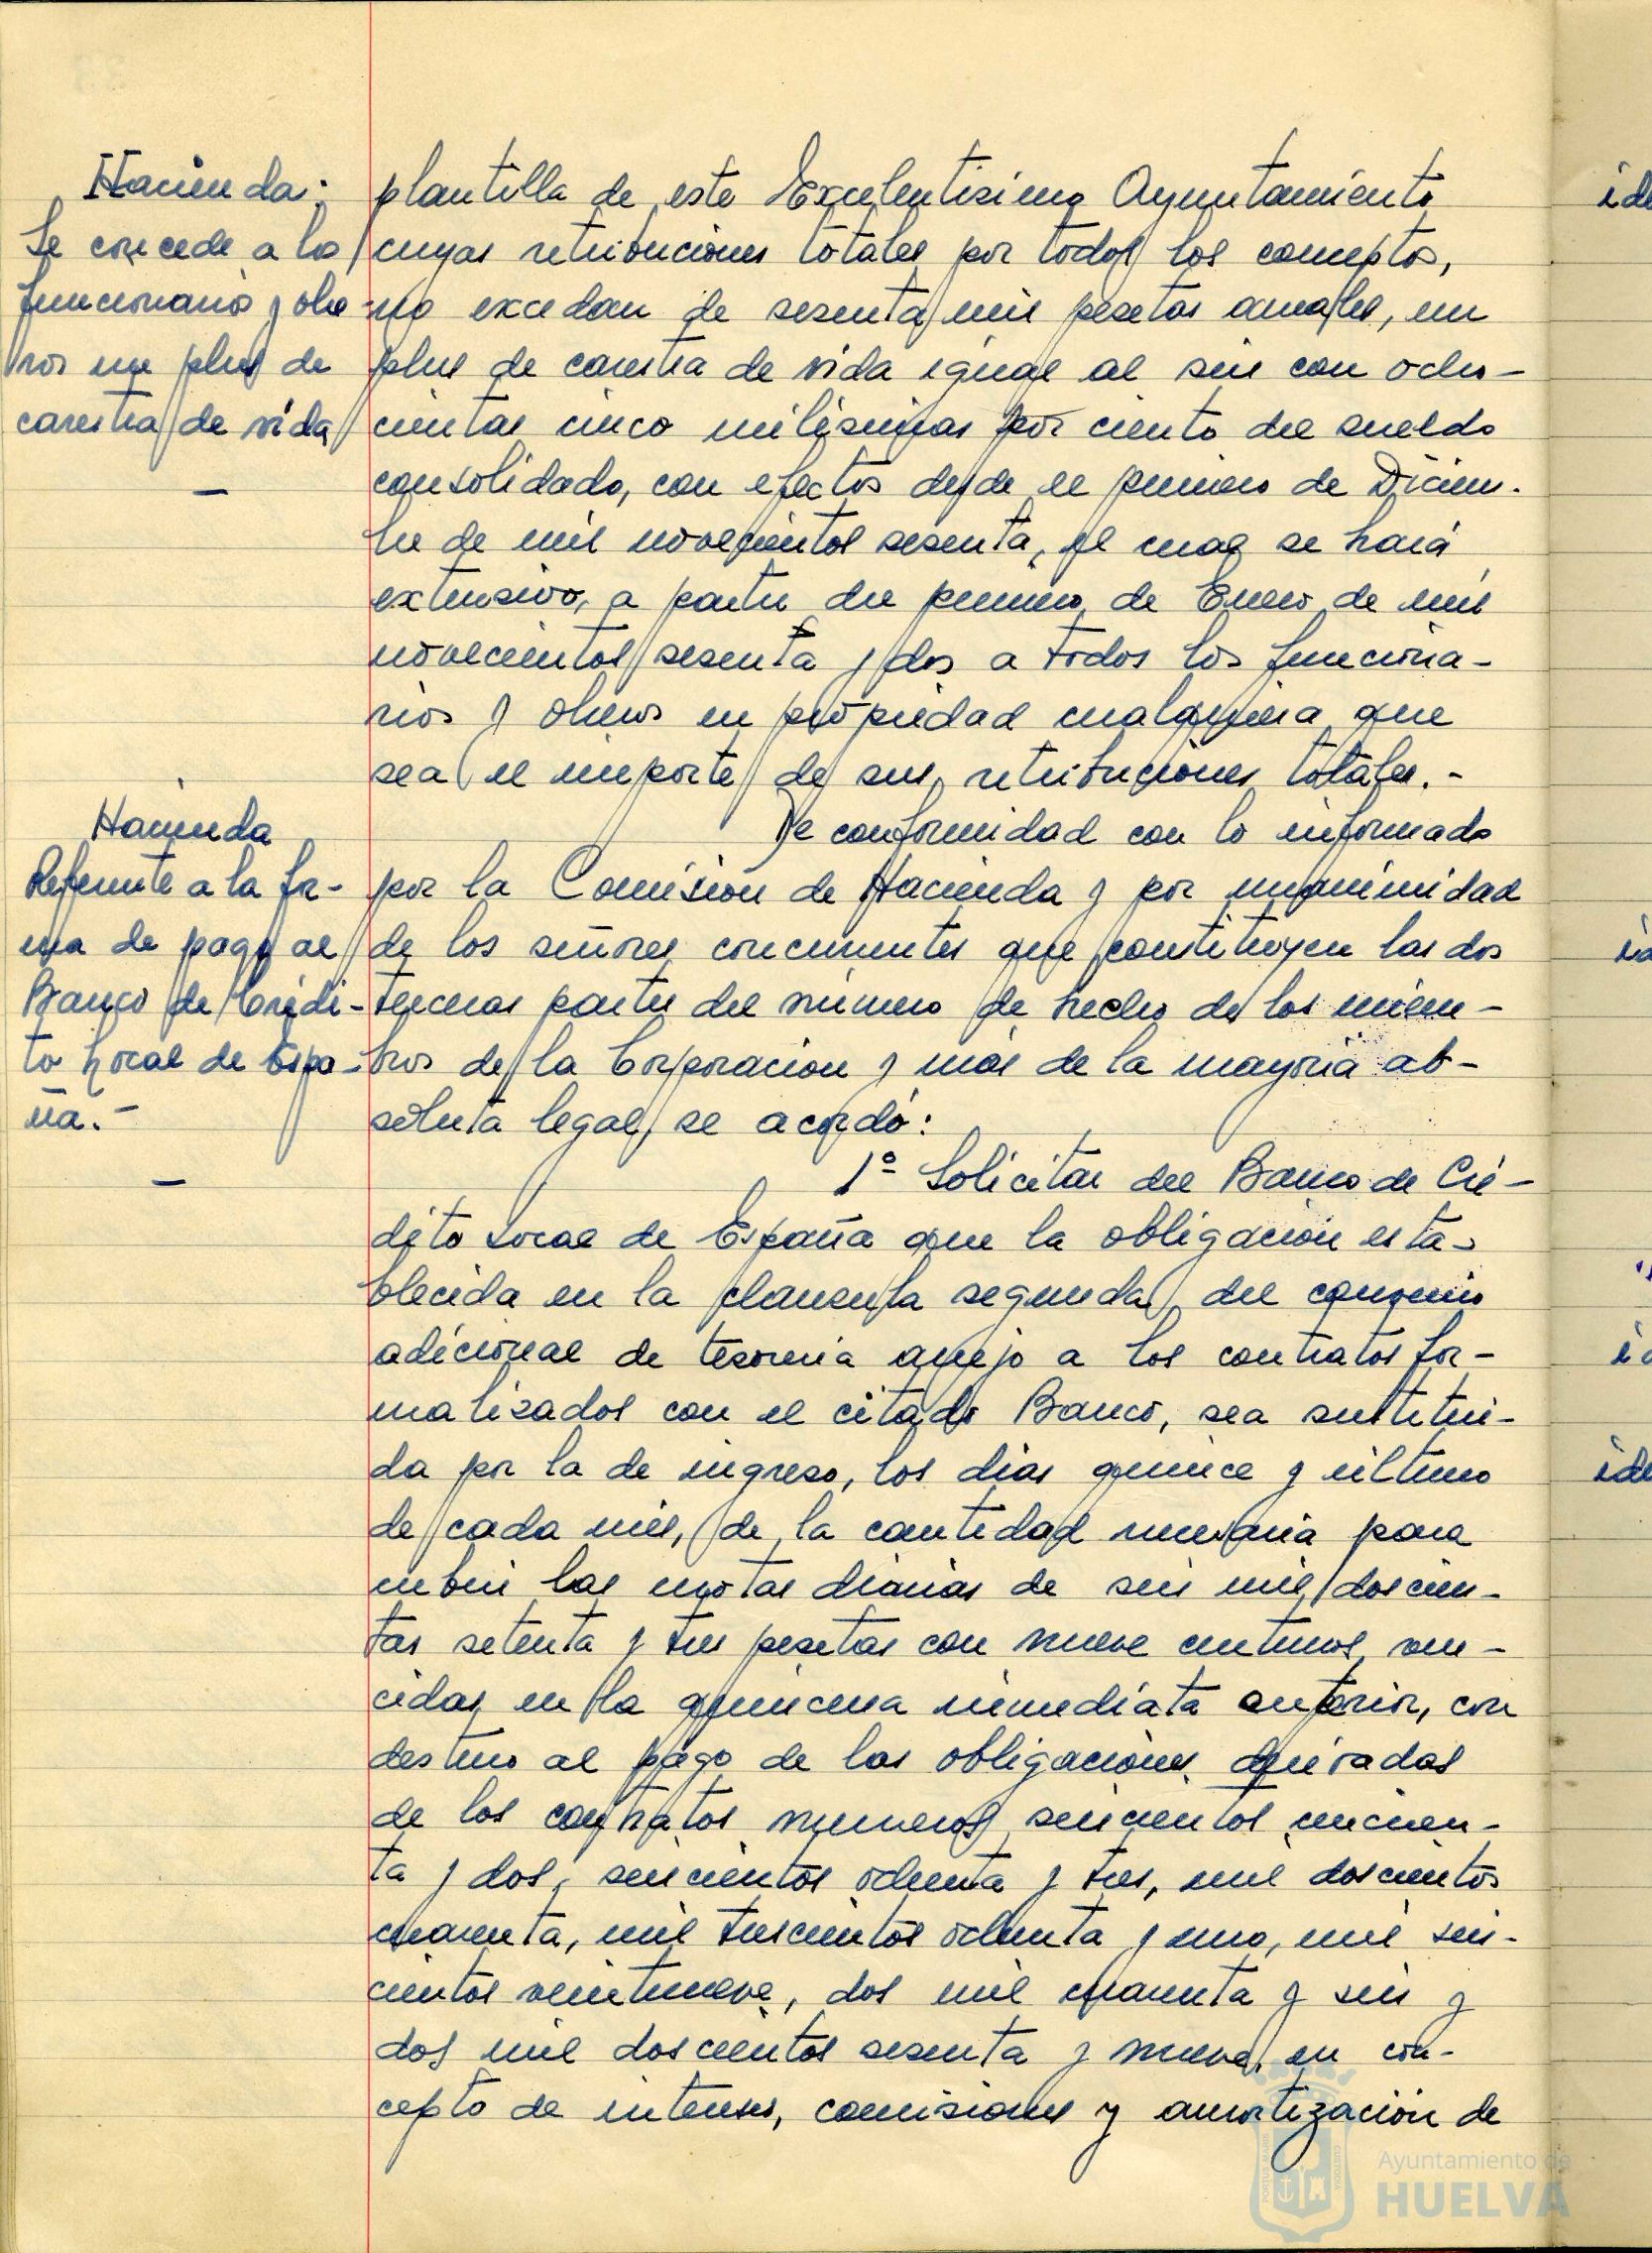 Hacienda:
Se concede a los
funcionarios y obre-
ros un plus de
carestia de vida
—
plantilla de este Excelentisimo Ayuntamiento
cuyas retribuciones totales por todos los conceptos,
no excedan de sesenta mil pesetas anuales, un
plus de carestia de vida igual al seis con ocho-
cientas cinco milésimas por ciento del sueldo
consolidado, con efectos desde el primero de Diciem-
bre de mil novecientos sesenta, el cual se hará
extensivo, a partir del primero de Enero de mil
novecientos sesenta y dos a todos los funciona-
rios y obreros en propiedad cualquiera que
sea el importe de sus retribuciones totales.-
Hacienda
Referente a la for-
ma de pago al
Banco de Crédi-
to Local de Espa-
ña.-
—
De conformidad con lo informado
por la Comisión de Hacienda y por unanimidad
de los señores concurrentes que constituyen las dos
terceras partes del número de hecho de los miem-
bros de la Corporación y más de la mayoria ab-
soluta legal, se acordó:
1º Solicitar del Banco de Cré-
dito Local de España que la obligación esta-
blecida en la clausula segunda del convenio
adicional de tesoreria anejo a los contratos for-
malizados con el citado Banco, sea sustitui-
da por la de ingreso, los dias quince y último
de cada mes, de la cantidad necesaria para
cubrir las cuotas diarias de seis mil doscien-
tas setenta y tres pesetas con nueve centimos, ven-
cidas en la quincena inmediata anterior, con
destino al pago de las obligaciones derivadas
de los contratos numeros seiscientos cincuen-
ta y dos, seiscientos ochenta y tres, mil doscientos
cuarenta, mil trescientos ochenta y uno, mil seis-
cientos veintinueve, dos mil cuarenta y seis y
dos mil doscientos sesenta y nueve, en con-
cepto de intereses, comisiones y amortización de
Ayuntamiento de
HUELVA